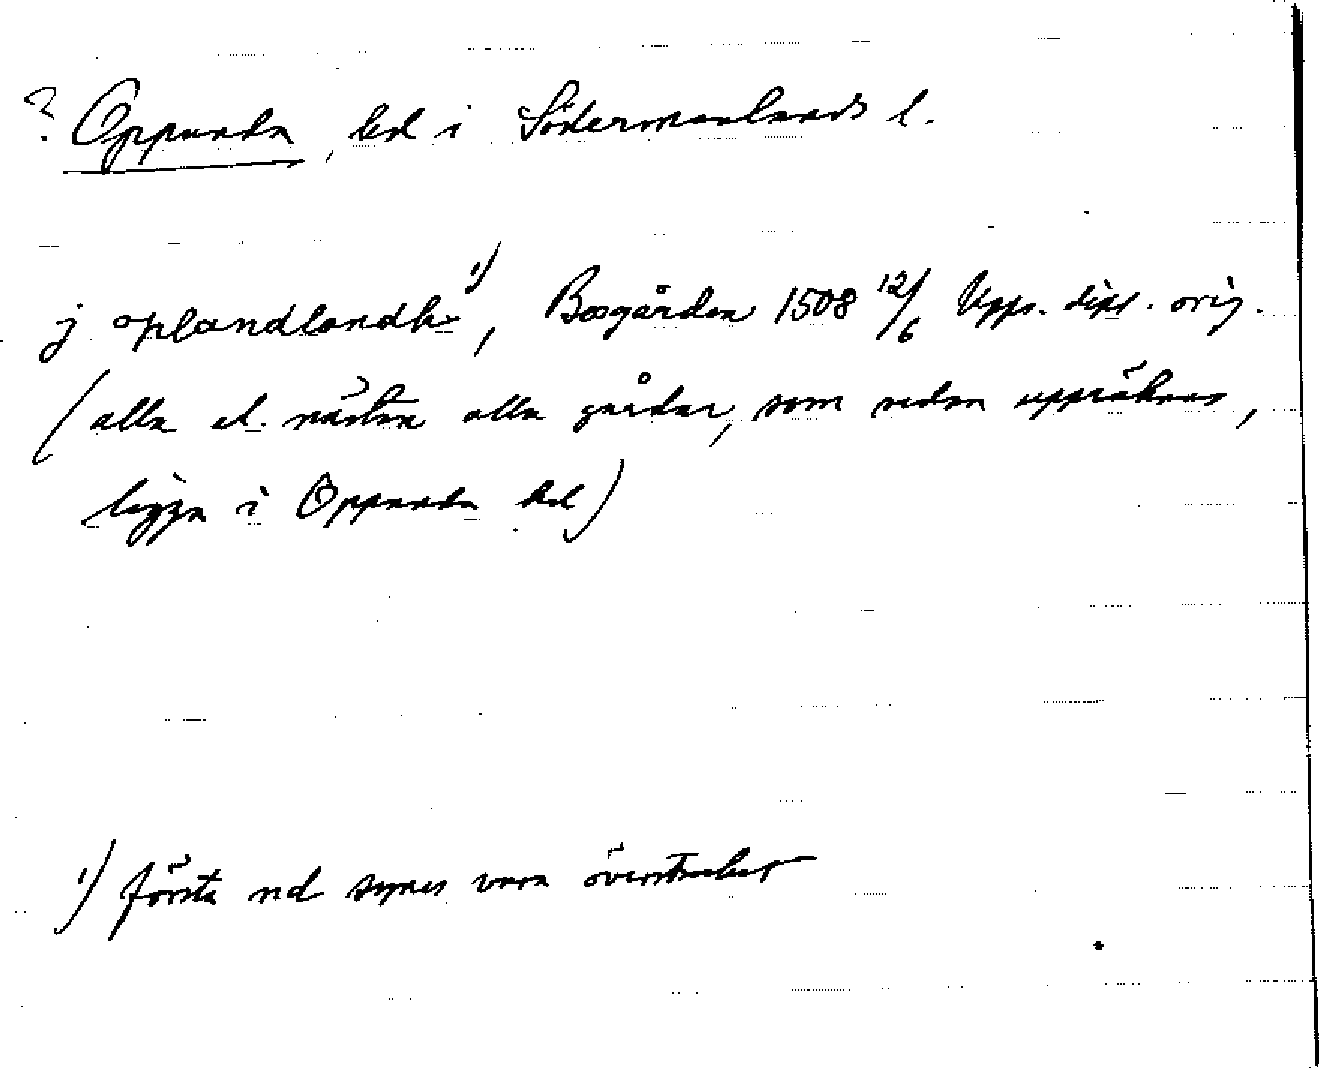 ? Oppunda, hd i Södermanlands l.
j oplandlandh 1), Bogården 1508 12/6 Upps. dipl. orig.
(alla el. nästan alla gårdar, som sedan uppräknas,
ligga i Oppunda hd)
1) första nd synes vara överstruket